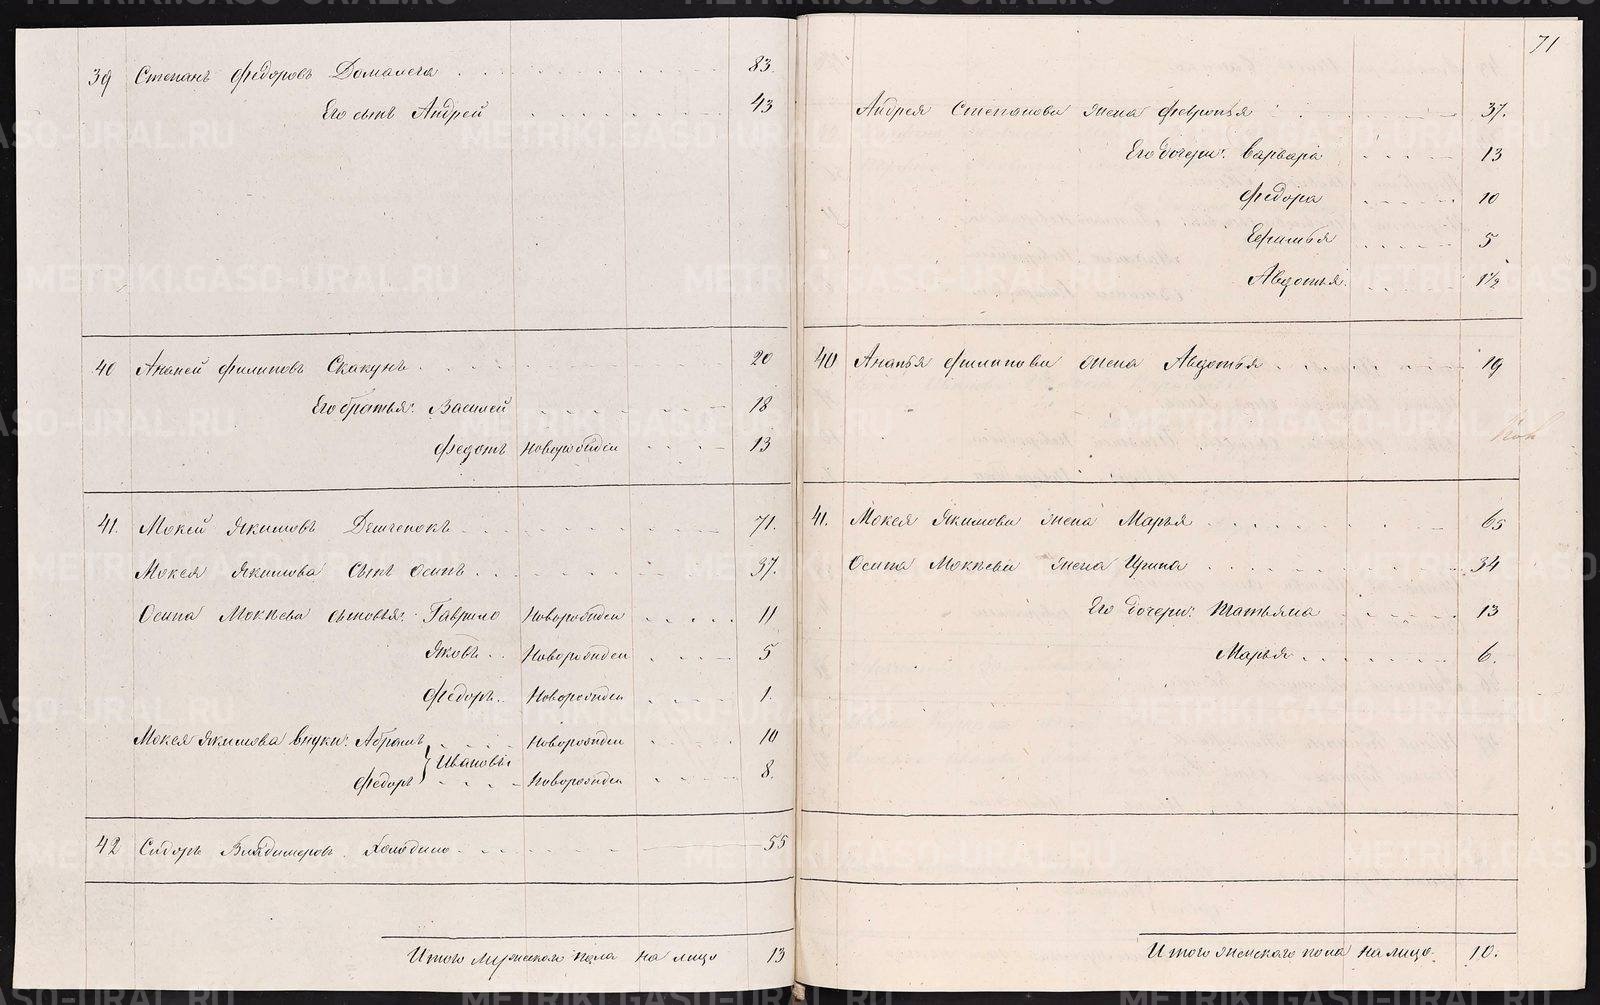 39 Степанъ Федоровъ Домалега 83.
Его сынъ Андрей 43
40 Ананей Филиповъ Скакунъ 20
Его братья: Василей 18
Федотъ Новорожден 13
41. Мокей Якимовъ 71.
Мокея Якимова сынъ Осипъ 37.
Осипа Мокѣева сыновья: Гаврило Новорожден 11
Яковъ Новорожден 5
Федоръ Новорожден 1.
Мокея Якимова внуки: Абрамъ Новорожден 10
Ивановы
Федоръ Новорожден 8.
42 Сидоръ Владимеровъ Холодило 55
Итого мужеска пола на лицо 13
71
Андрея Степанова жена Февронья 37.
Его дочери: Варвара 13
Федора 10
5
Авдотья 1½
40 Ананья Филипова жена Авдотья 19
41. Мокея Якимова жена Марья 65
Осипа Мокѣева жена Ирина 34
Его дочери: Татьяна 13
Марья 6.
Итого женскаго пола на лицо 10.
METRIKI.GASO-URAL.RU